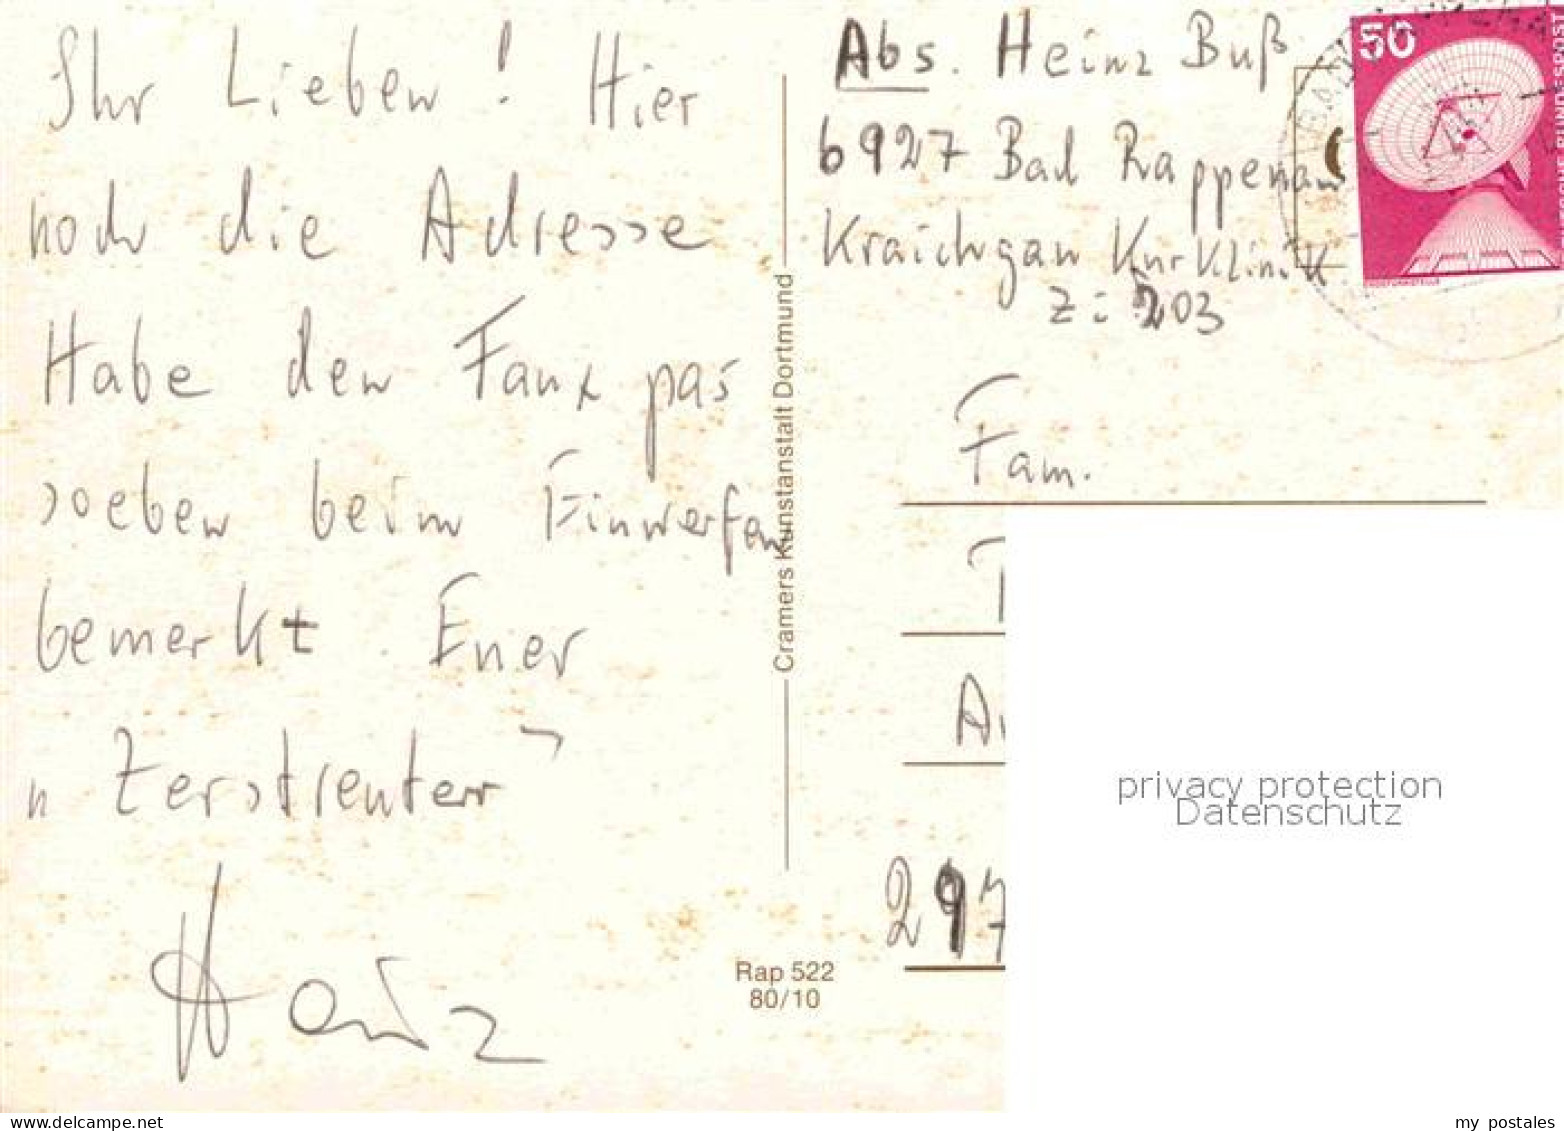 Ihr Lieben! Hier
noch die Adresse
Habe den Faux pas
soeben beim Einwerfen
bemerkt. Euer
"Zerstreuter"
Heinz
Cramers Kunstanstalt Dortmund
Rap 522
80/10
Abs. Heinz Buß
6927 Bad Rappenau
Kraichgau Kurklinik
Z: 203
50
DEUTSCHE BUNDESPOST
Fam.
297
privacy protection
Datenschutz
www.delcampe.net
my_postales